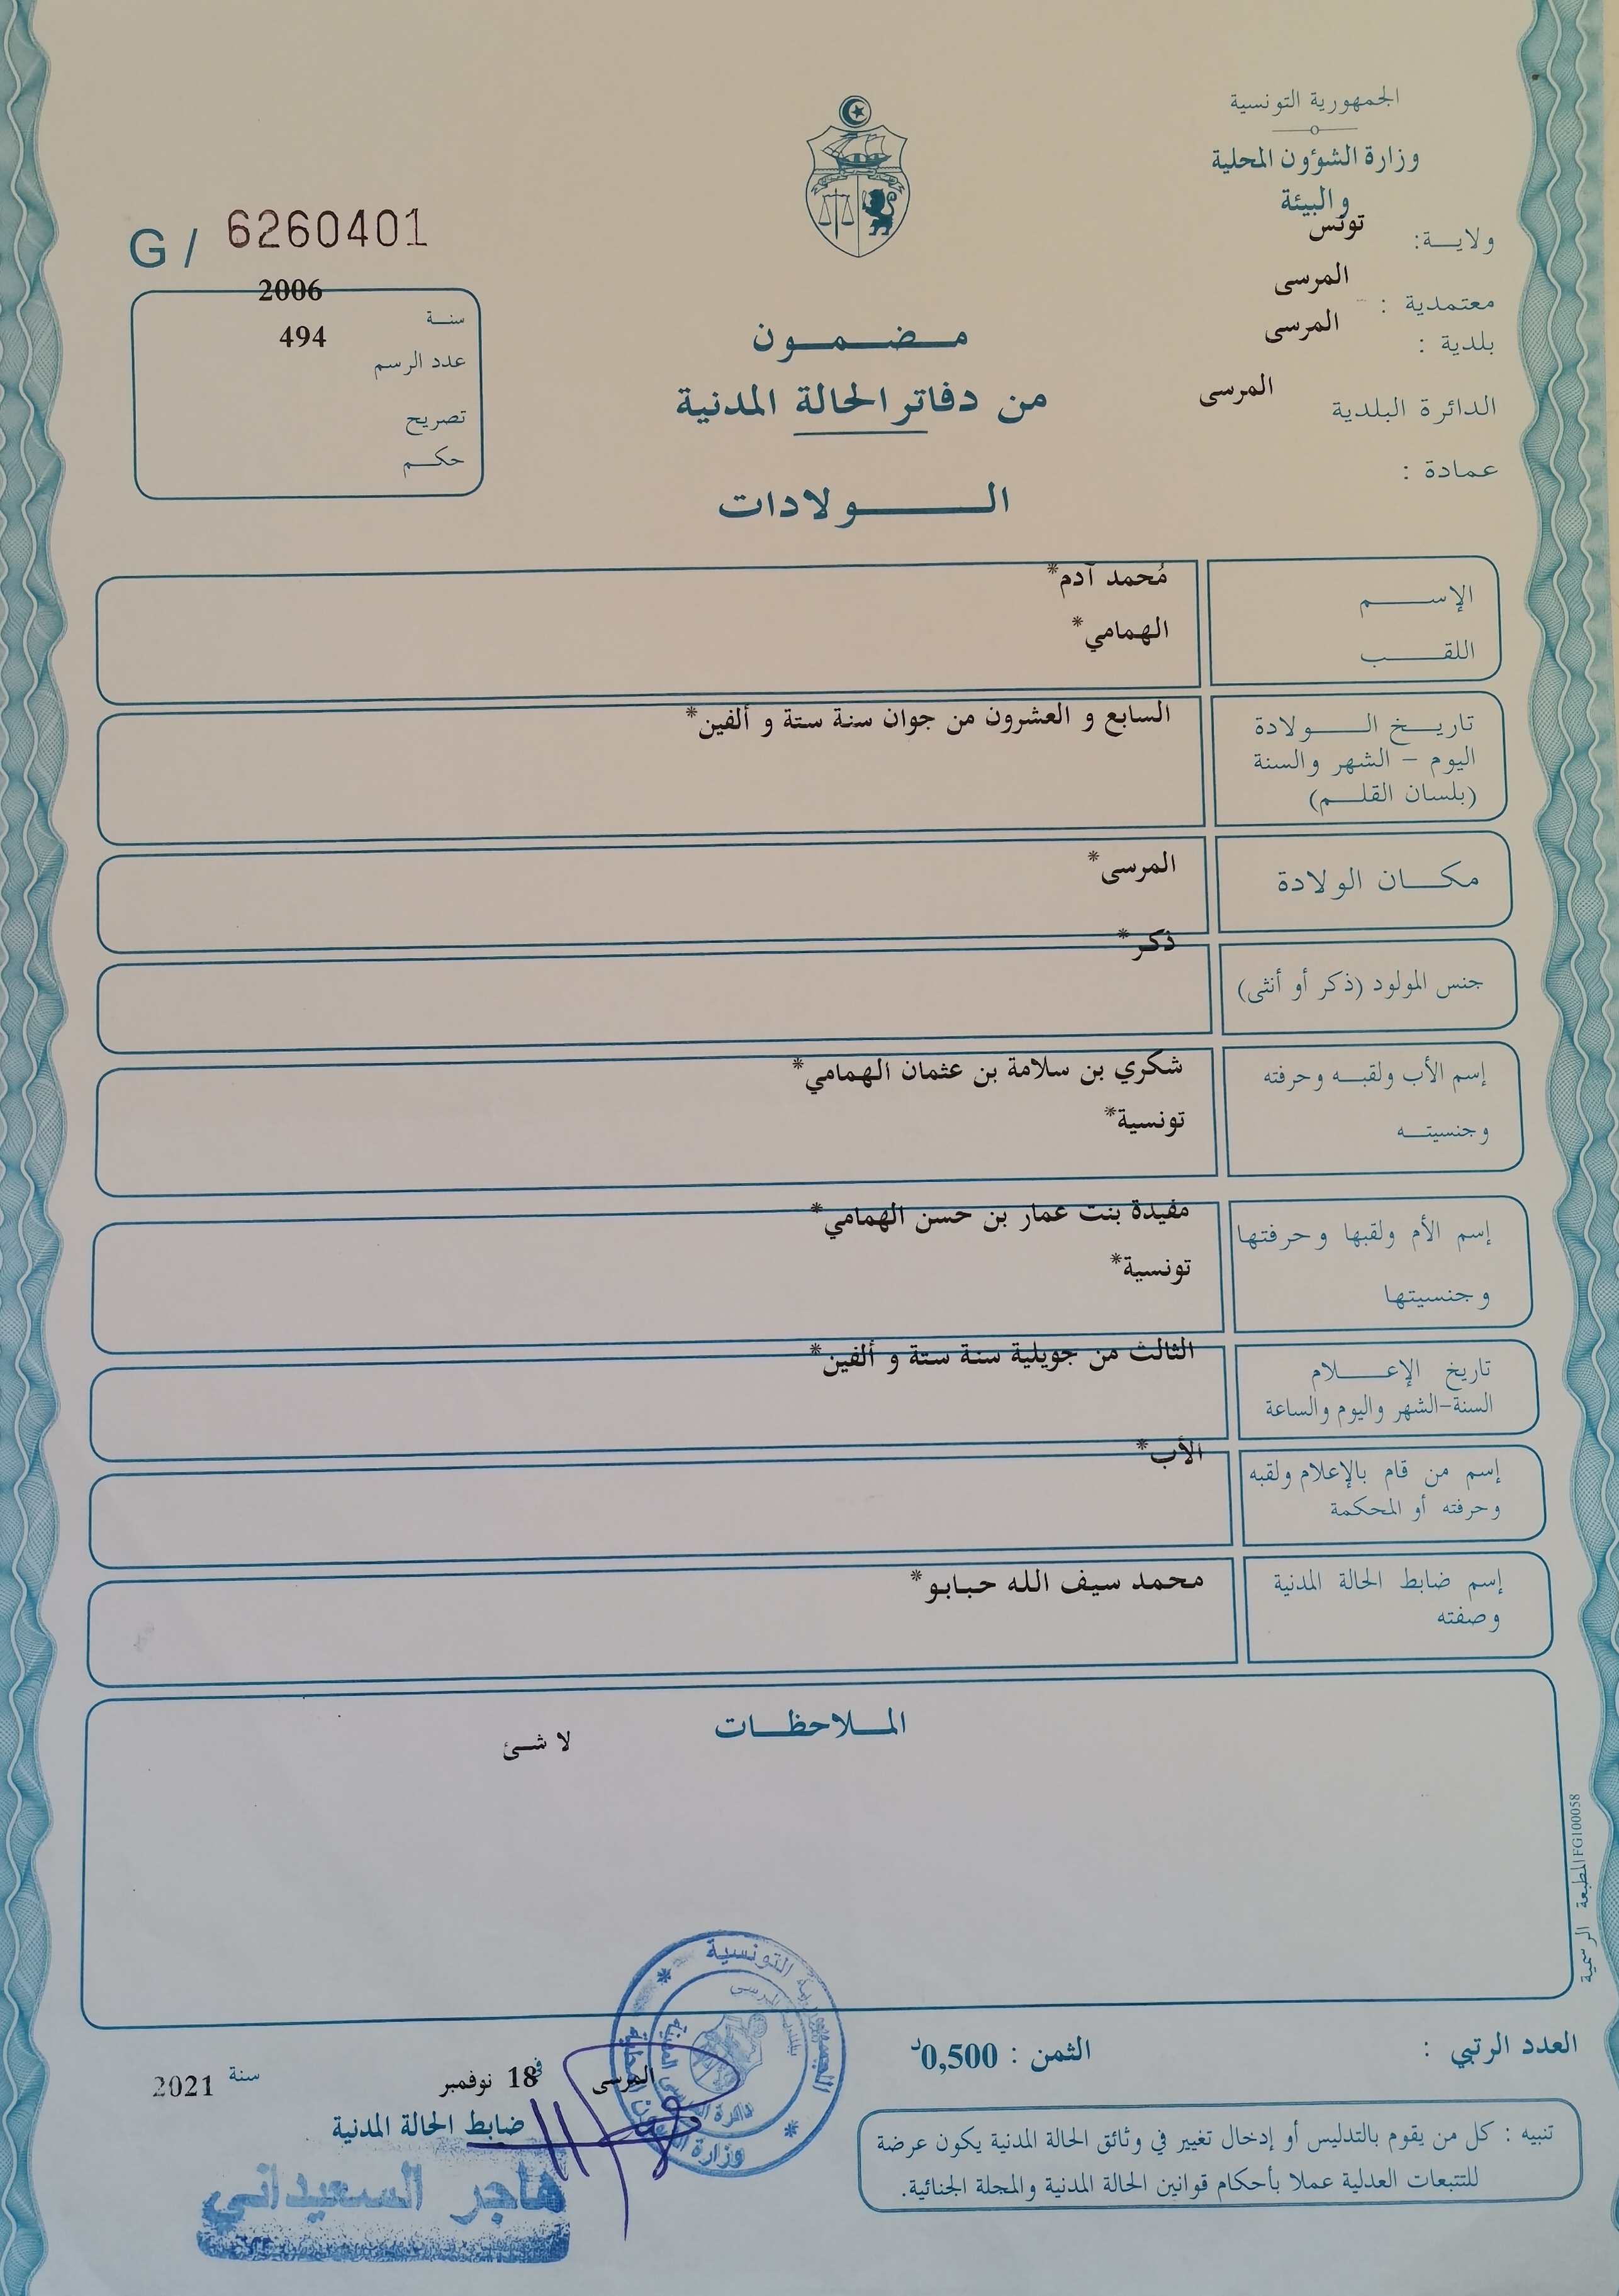 الجمهورية التونسية
وزارة الشؤون المحلية
والبيئة
ولاية: تونس
معتمدية : المرسى
بلدية : المرسى
الدائرة البلدية المرسى
عمادة :
G / 6260401
سنة 2006
عدد الرسم 494
تصريح
حكم
مضمون
من دفاتر الحالة المدنية
الولادات
الإسم مُحمد آدم*
اللقب الهمامي*
تاريخ الولادة السابع و العشرون من جوان سنة ستة و ألفين*
اليوم - الشهر والسنة
(بلسان القلم)
مكان الولادة المرسى*
جنس المولود (ذكر أو أنثى) ذكر*
إسم الأب ولقبه وحرفته شكري بن سلامة بن عثمان الهمامي*
وجنسيته تونسية*
إسم الأم ولقبها وحرفتها مفيدة بنت عمار بن حسن الهمامي*
وجنسيتها تونسية*
تاريخ الإعلام الثالث من جويلية سنة ستة و ألفين*
السنة-الشهر واليوم والساعة
إسم من قام بالإعلام ولقبه الأب*
وحرفته أو المحكمة
إسم ضابط الحالة المدنية محمد سيف الله حبابو*
وصفته
الملاحظات
لا شئ
المطبعة الرسمية FG100058
العدد الرتبي :
الثمن : 0,500د
المرسى في 18 نوفمبر سنة 2021
ضابط الحالة المدنية
هاجر السعيداني
تنبيه : كل من يقوم بالتدليس أو إدخال تغيير في وثائق الحالة المدنية يكون عرضة
للتتبعات العدلية عملا بأحكام قوانين الحالة المدنية والمجلة الجنائية.